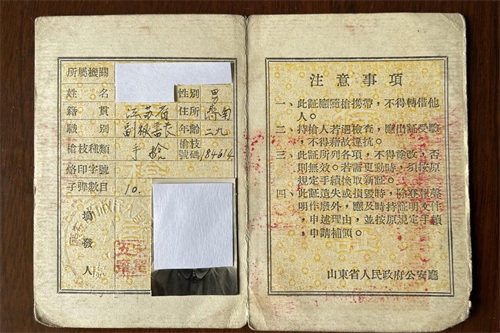 所屬機關
姓名 性別 男
籍貫 江苏省 住所 濟南
職別 副秘書長 年齡 二九
槍枝種類 手槍 槍枝號碼 84614
烙印字號
子彈數目 10.
填發人
注意事項
一、此証應隨槍携帶，不得轉借他
人。
二、持槍人若遇檢查，應出証受驗，
不得藉故違抗。
三、此証所列各項，不得塗改，否
則無效。若需更動時，須按原
規定手續換取新証。
四、此証遺失或損毀時，除登報聲
明作廢外，應及時持証明文件，
申述理由，並按原規定手續，
申請補領。
山東省人民政府公安廳